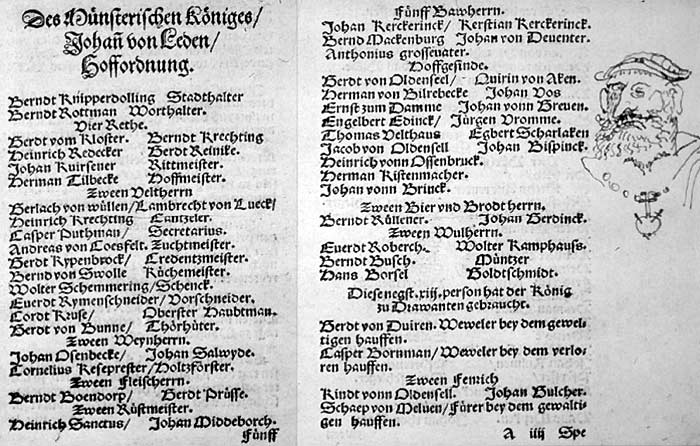 Des Münsterischen Königes/
Johañ von Leden/
Hoffordnung.
Berndt Knipperdolling Stadthalter
Berndt Rottman Worthalter.
Vier Rethe.
Gerdt vom Kloster. Berndt Krechting
Heinrich Redecker Gerdt Reinike.
Johan Kuirsener Rittmeister.
Herman Tilbecke Hoffmeister.
Zween Veltherrn
Gerlach von wüllen/ Lambrecht von Lueck/
Heinrich Krechting Cantzeler.
Casper Puthman/ Secretarius.
Andreas von Coesfelt. Zuchtmeister.
Gerdt Rypenbrock/ Credentzmeister.
Bernd von Swolle Küchemeister.
Wolter Schemmering/ Schenck.
Euerdt Rymenschneider/ Vorschneider.
Cordt Kruse/ Oberster Haubtman.
Gerdt von Bunne/ Thörhüter.
Zween Weynherrn.
Johan Osenbecke/ Johan Salwyde.
Cornelius Keseprester/ Holtzförster.
Zween Fleischerrn.
Berndt Boendorp/ Gerdt Prüsse.
Zween Rüstmeister.
Heinrich Sanctus/ Johan Middeborch.
Fünff
Fünff Bawherrn.
Johan Kerckerinck/ Kerstian Kerckerinck.
Bernd Mackenburg Johan von Deuenter.
Anthonius grosseuater.
Hoffgesinde.
Gerdt von Oldenseel/ Quirin von Aken.
Herman von Bilrebecke Johan Vos
Ernst zum Damme Johan vonn Greuen.
Engelbert Edinck/ Jürgen Vromme.
Thomas Velthaus Egbert Scharlaken
Jacob von Oldensell Johan Bispinck.
Heinrich vonn Ossenbruck.
Herman Kistenmacher.
Johan vonn Brinck.
Zween Bier vnd Brodt herrn.
Berndt Küllener. Johan Gerdinck.
Zween Wulherrn.
Euerdt Roberch. Wolter Kamphauss.
Berndt Busch. Müntzer
Hans Borsel Goldtschmidt.
Diese negst. xiij. person hat der König
zu Drawanten gebraucht.
Gerdt von Duiren. Weweler bey dem gewel-
tigen hauffen.
Casper Bornman/ Weweler bey dem verlo-
ren hauffen.
Zween Fenrich
Kindt vonn Oldensell. Johan Bulcher.
Schaep von Meluen/ Fürer bey dem gewalti-
gen hauffen.
A iiij Spe